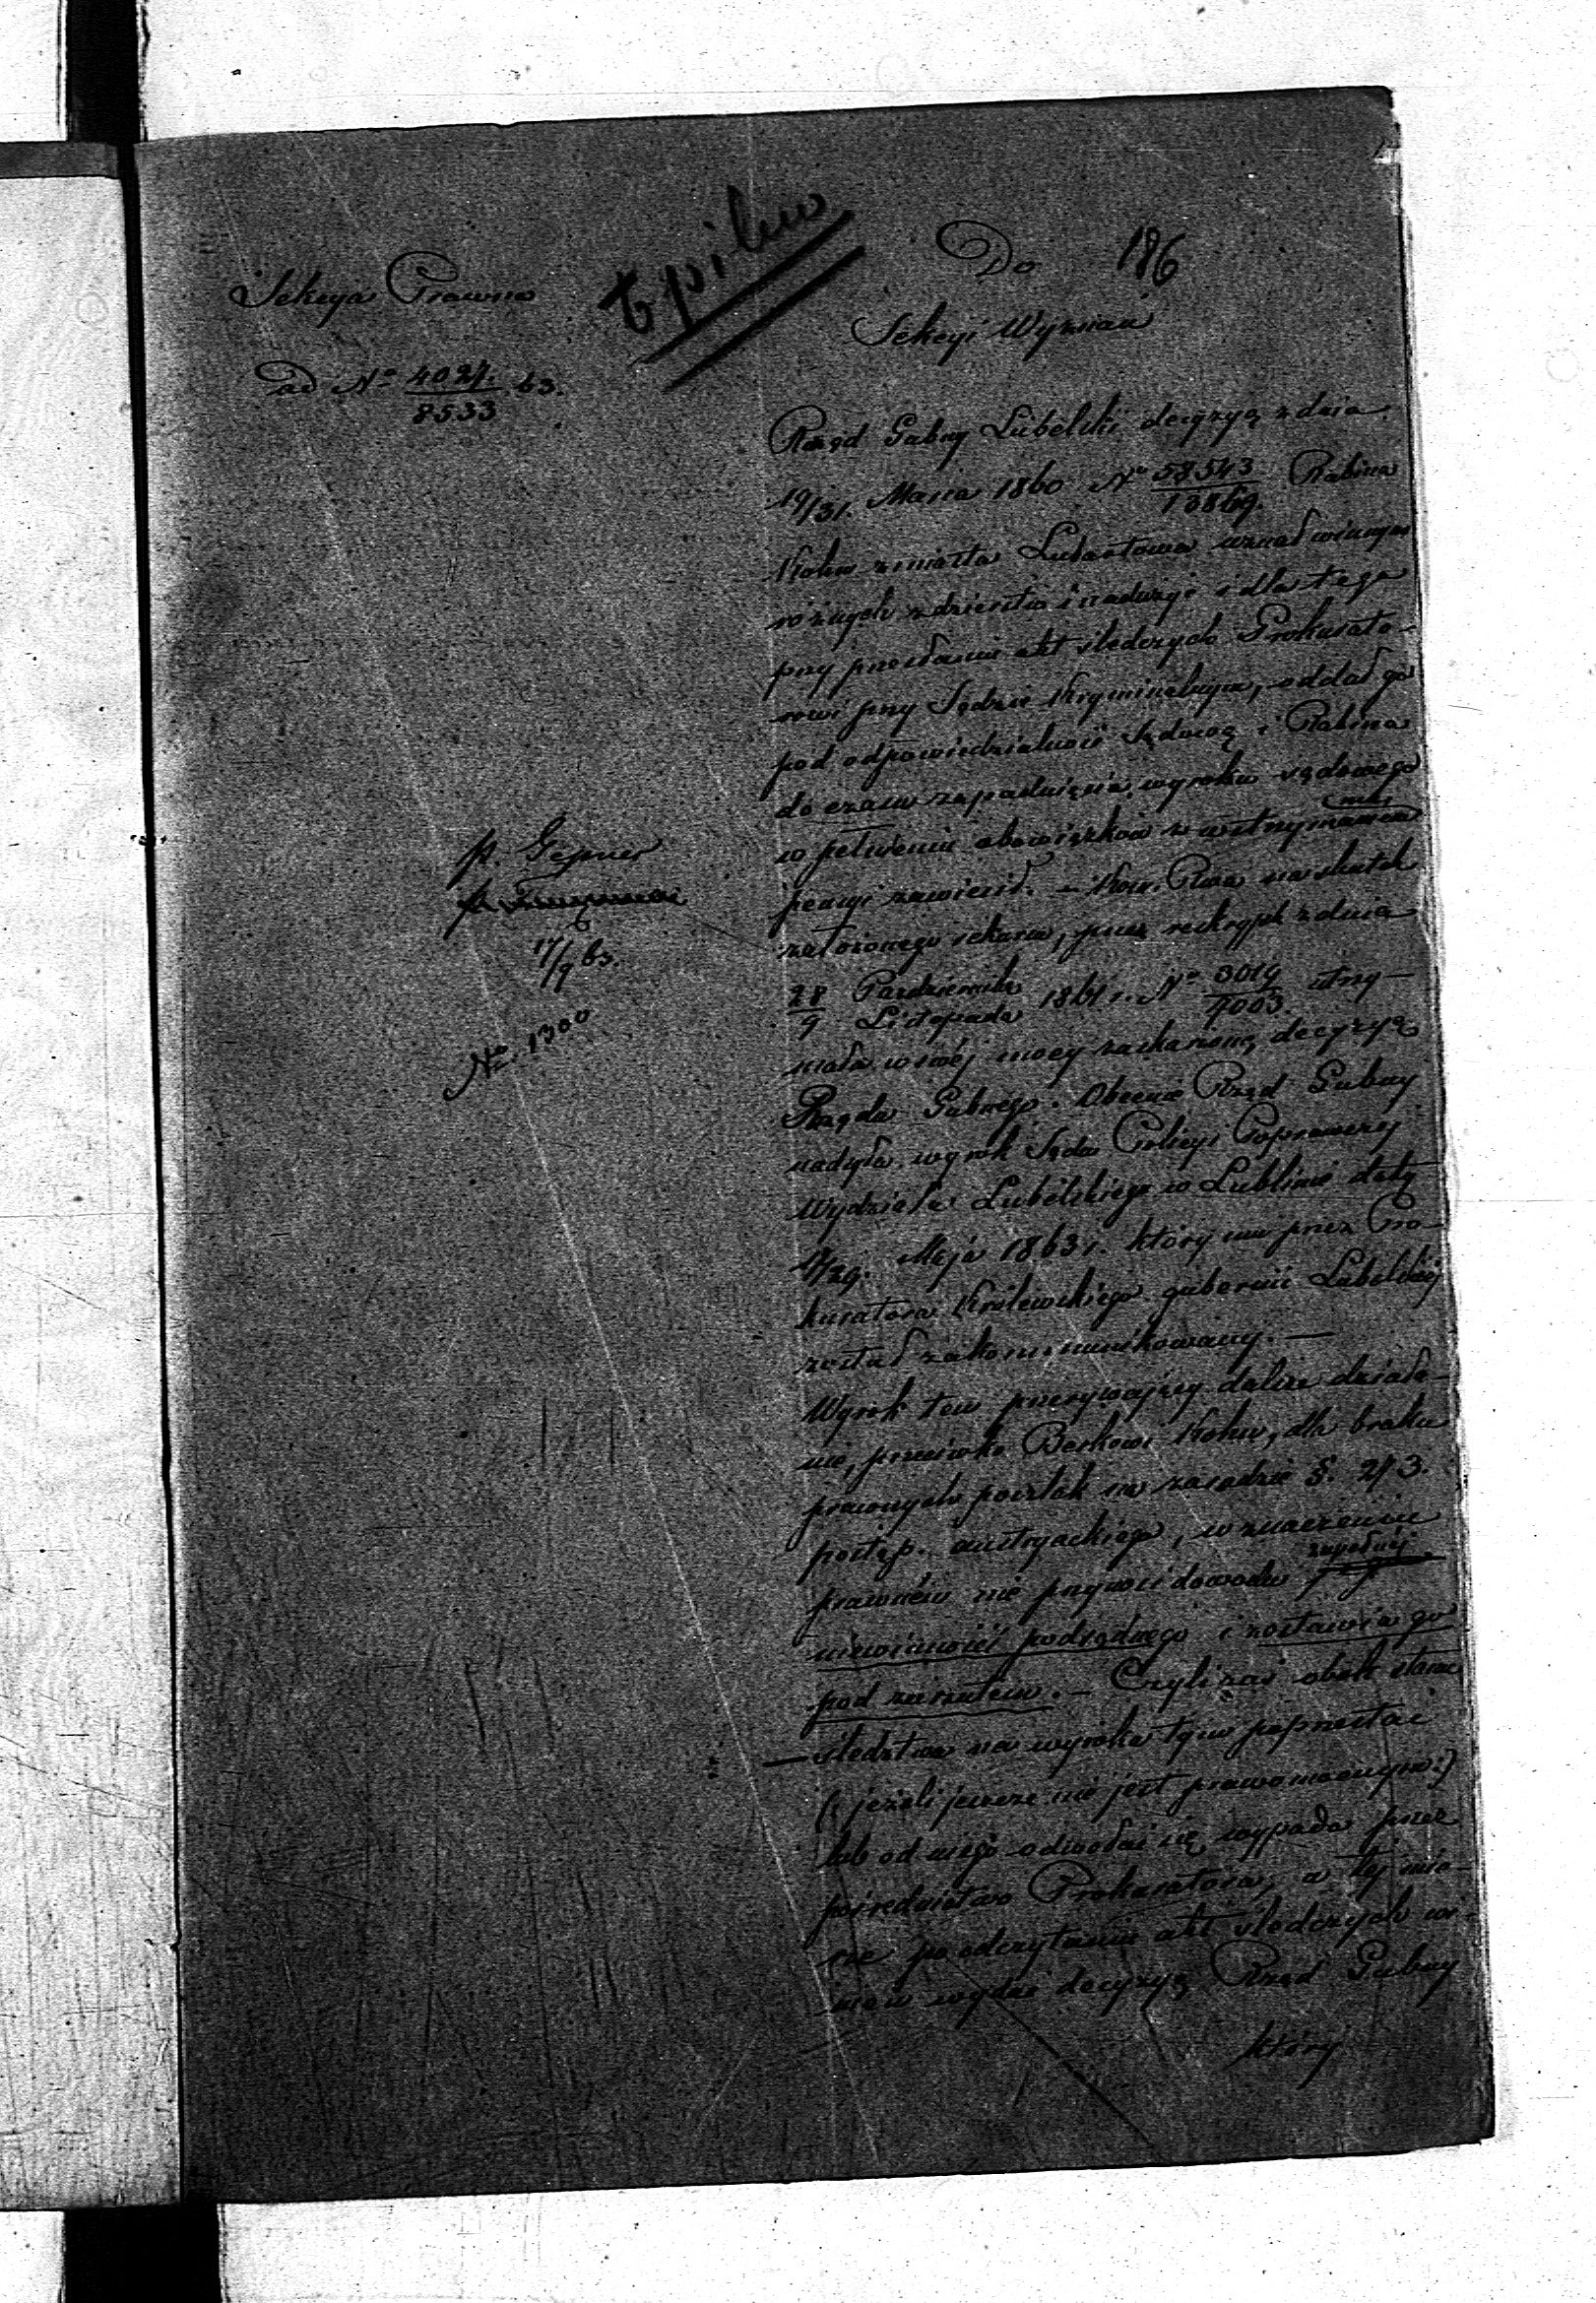 Sekcya Prawna
ad No 4027/8533 63.
b. pilno
Do 186
Sekcyi Wyznań
Rząd Gubny Lubelski decyzyą z dnia
19/31. Marca 1860 No 58543/13869. Rabina
Kohn z miasta Lubartowa uznał winnym
różnych zdzierstw i nadużyć i dla tego
przy przesłaniu akt śledczych Prokurato-
rowi przy Sądzie Kryminalnym, oddał go
pod odpowiedzialność Sądową i Rabina
do czasu zapadnięcia wyroku sądowego
w pełnieniu obowiązków z wstrzymaniem
pensyi zawiesił. – Kom. Rząd. na skutek
założonego rekursu, przez reskrypt z dnia
28 Października/9 Listopada 1861 r. No 3019/7003. utrzy-
mała w swéj mocy zaskarżoną decyzyą
Rządu Gubnego. Obecnie Rząd Gubny
nadsyła wyrok Sądu Policyi Poprawczej
Wydziału Lubelskiego w Lublinie daty
17/29. Maja 1863 r. który mu przez Pro-
kuratora Królewskiego gubernii Lubelskiéj
został zakommunikowany. —
Wyrok ten przerywający dalsze działa-
nie, przeciwko Berkowi Kohn, dla braku
prawnych poszlak na zasadzie §. 213.
postęp. austryackiego, w znaczeniu
prawném nie przynosi dowodu zupełnéj
niewinności podsądnego i zostawia go
pod zarzutem. – Czyli zaś obok stanu
śledztwa na wyroku tym poprzestać
(: jeżeli jeszcze nie jest prawomocnym :)
lub od niego odwołać się wypada przez
pośrednictwo Prokuratora, w téj mie-
rze po odczytaniu akt śledczych wi-
nien wydać decyzyą Rząd Gubny
który
p. Gepner
17/9 63.
No. 1300